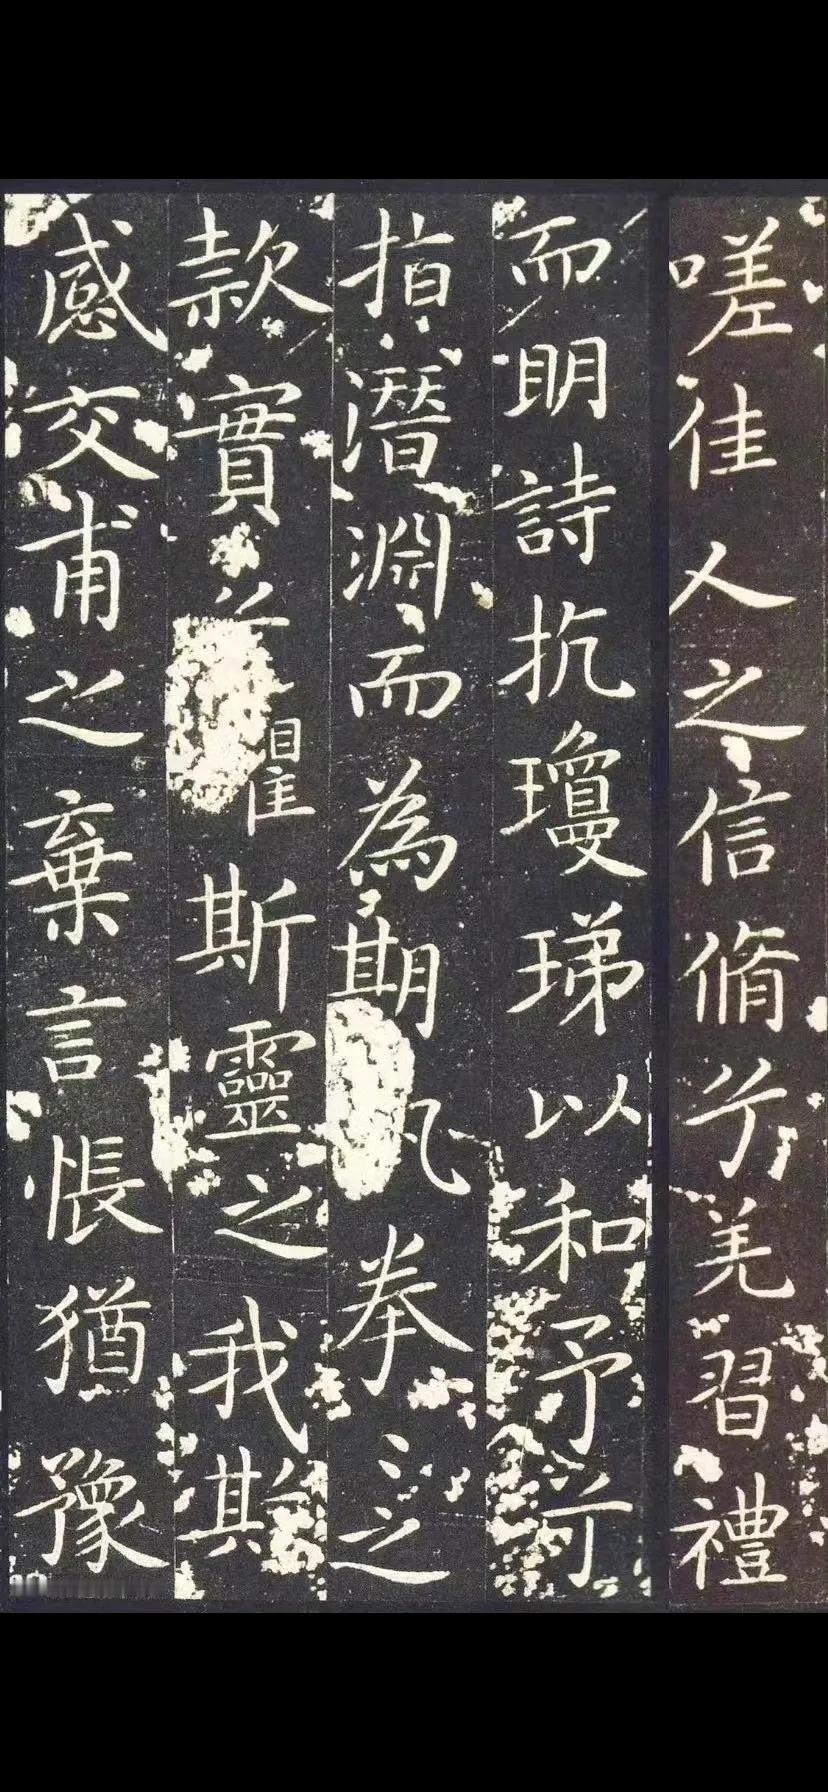 嗟佳人之信脩兮羌習禮
而明詩抗瓊珶以和予兮
指潛淵而為期拳〻之
款實懼斯靈之我
感交甫之棄言悵猶豫